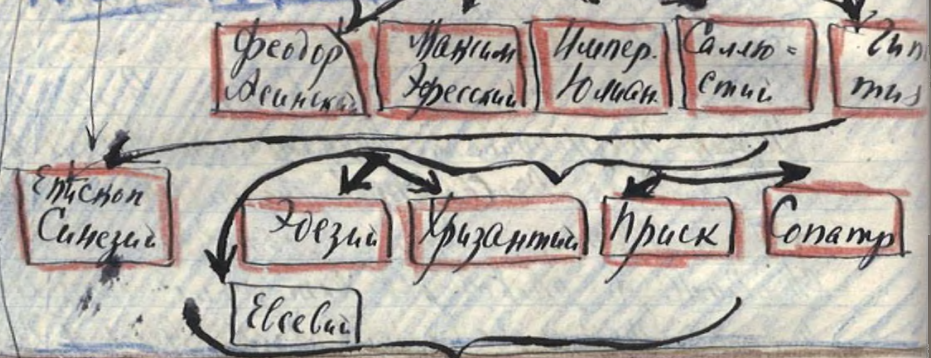 Феодор
Асинский
Максим
Эфесский
Импер.
Юлиан
Саллю=
стий
Епископ
Синезий
Эдезий
Хризантий
Приск
Сопатр
Евсевий